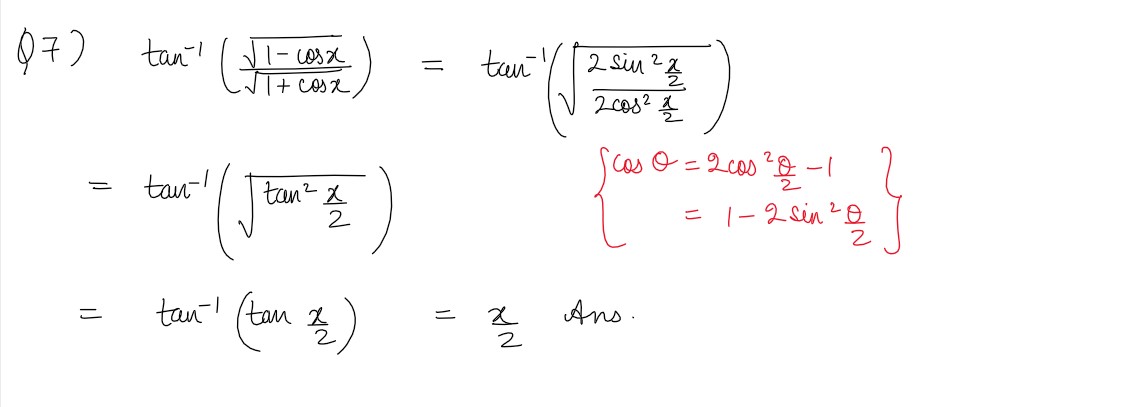 Q7) tan⁻¹ (√(1 - cosx) / √(1 + cosx)) = tan⁻¹ (√(2 sin² x/2 / 2cos² x/2))
= tan⁻¹ (√(tan² x/2))
{cos θ = 2cos² θ/2 - 1
= 1 - 2 sin² θ/2}
= tan⁻¹ (tan x/2) = x/2 Ans.